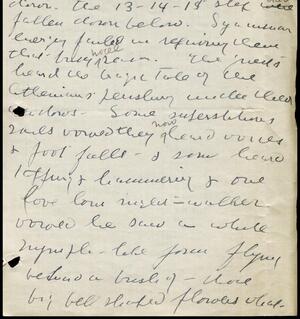 down. the 13-14-15 step were
fallen down below.
energy failed in repairing them
this
heard the tragic tale of the
Athenians perishing under their
Some superstitious
souls vowed they now heard voices
& foot falls - & some heard
tapping & hammering & one
love lorn night-walker
vowed he saw a white
nymph-like form flying
behind a bush of - those
big bell shaped flowers that